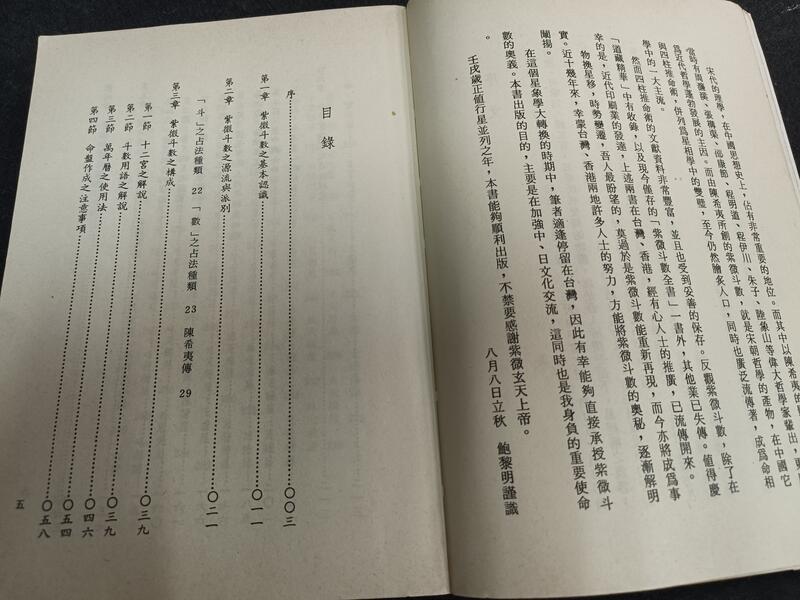 宋代的理學，在中國思想史上，佔有非常重要的地位。而其中以陳希夷的
當時有周濂溪、張橫渠、邵康節、程明道、程伊川、朱子、陸象山等偉大哲學家輩出，更
為近代哲學蓬勃發展的主因。而由陳希夷所創的紫微斗數，就是宋朝哲學的產物，在中國它
與四柱推命術，併列為星相學中的雙璧，至今仍然膾炙人口，同時也廣泛流傳著，成為命相
學中的一大主流。
然而四柱推命術的文獻資料非常豐富，並且也受到妥善的保存。反觀紫微斗數，除了在
「道藏精華」中有收錄，以及現今僅存的「紫微斗數全書」一書外，其他業已失傳。值得慶
幸的是，近代印刷業的發達，上述兩書在台灣、香港，經有心人士的推廣，已流傳開來。
物換星移，時勢變遷，吾人最盼望的，莫過於是紫微斗數能重新再現，而今亦將成為事
實。近十幾年來，幸蒙台灣、香港兩地許多人士的努力，方能將紫微斗數的奧秘，逐漸解明
闡揚。
在這個星象學大轉換的時期中，筆者適逢停留在台灣，因此有幸能夠直接承授紫微斗
數的奧義。本書出版的目的，主要是在加強中、日文化交流，這同時也是我身負的重要使命
。
壬戌歲正值行星並列之年，本書能夠順利出版，不禁要感謝紫微玄天上帝。
八月八日立秋　鮑黎明謹識
目錄
序……○○三
第一章　紫微斗數之基本認識……○一一
第二章　紫微斗數之源流與派別……○二一
「斗」之占法種類　22　「數」之占法種類　23　陳希夷傳　29
第三章　紫微斗數之構成……○三九
第一節　十二宮之解說……○三九
第二節　斗數用語之解說……○四六
第三節　萬年曆之使用法……○五四
第四節　命盤作成之注意事項……○五八
五